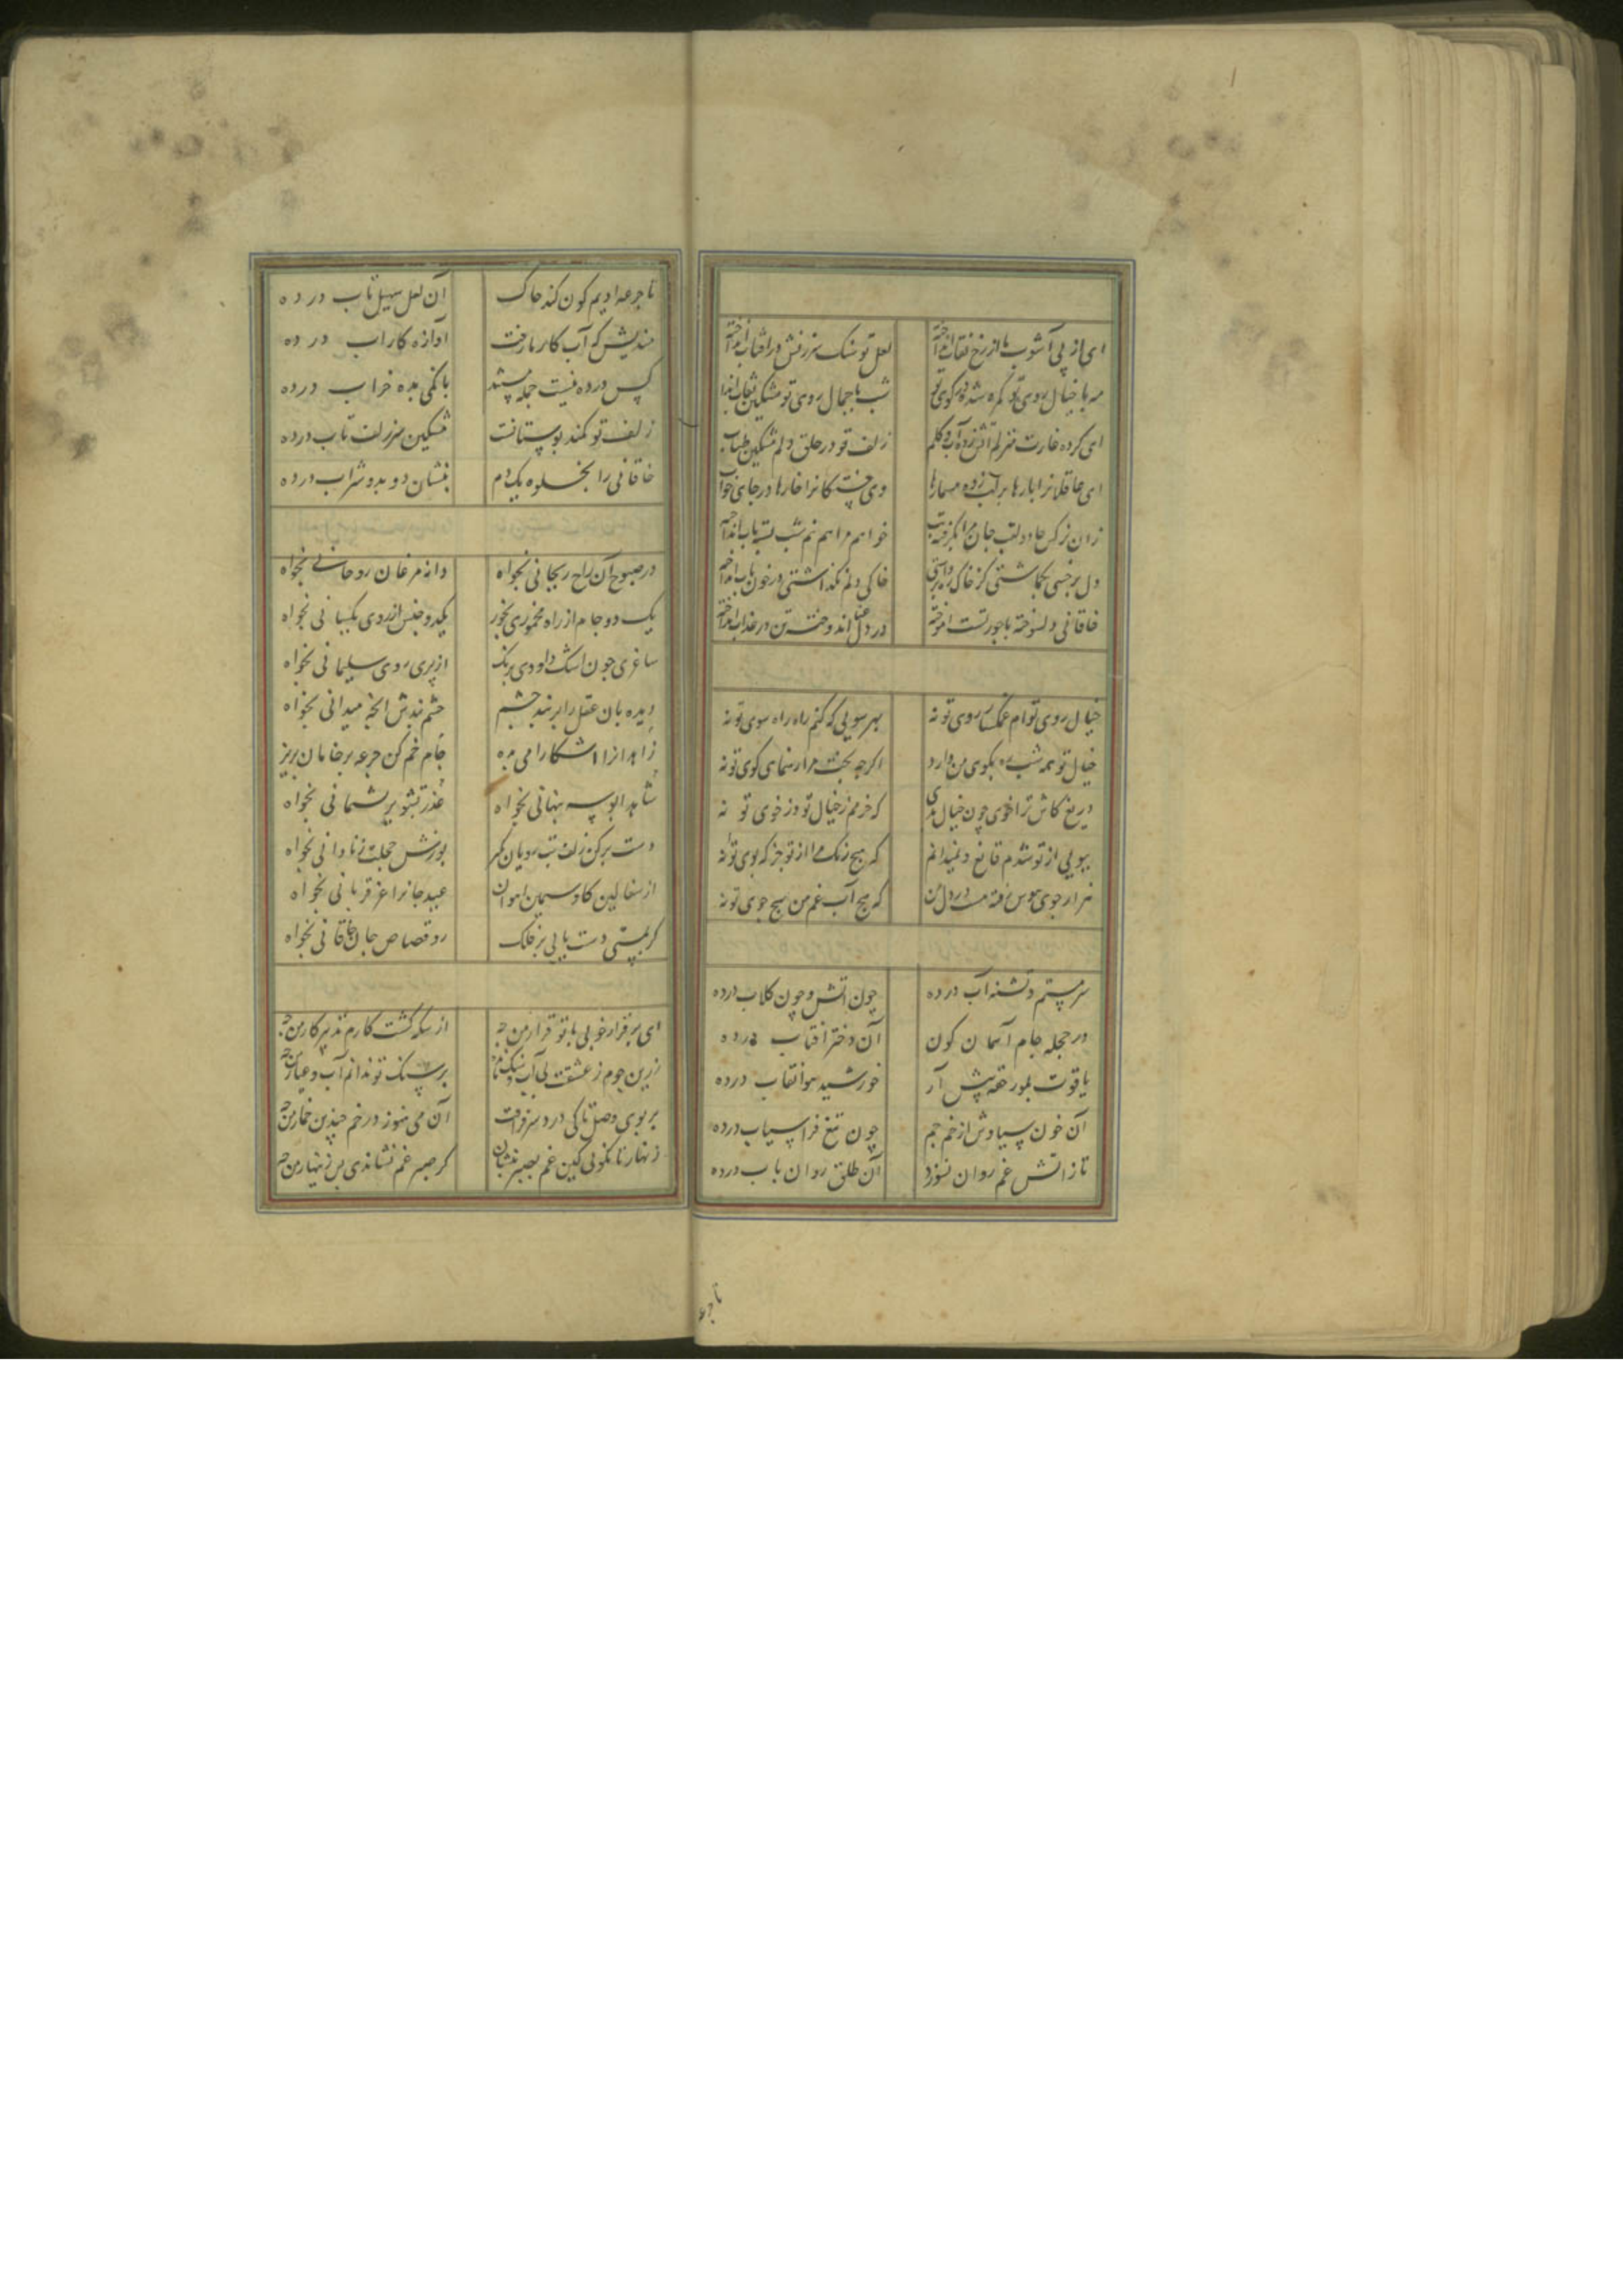 ای از پی آشوب ما از رخ نقاب انداخته لعل تو سنک سرزنش در آفتاب انداخته
مه با خیال روی تو کمره شده در کوی تو شب با جمال روی تو مشکین نقاب انداخته
ای کرده غارت منزلم آتش زده آب و کلم زلف تو در حلق دلم مشکین طناب
ای عاقلانرا بارها بر لب زده مسمارها وی خستکانرا خارها در جای خواب
زان نرکس جادو لقب جان مرا بکرفته تب خواهم مرا هم نیم شب بسته بآب انداخته
دل بر خسی بکماشتی کز خاک ره برداشتی خاکی دلم نکذاشتی در خون ناب انداخته
خاقانی دلسوخته با جور تست آموخته در دل عنا اندوخته تن در عذاب انداخته
خیال روی توام غمکسار و روی تو نه بهر سویی که کنم راه راه سوی تو نه
خیال تو همه شب ره بکوی من دارد اکرچه بخت مرا رهنمای کوی تو نه
دریغ کاش ترا خوی چون خیال بدی که خرمم ز خیال تو وز خوی تو نه
ببویی از تو شدم قانع و نمیدانم که هیچ رنک مرا از تو جز که بوی تو نه
هزار جوی هوس رفته است در دل من که هیچ آب غم من بهیچ جوی تو نه
سرمستم و تشنه آب در ده چون آتش و چون کلاب درده
در حجله جام آسمان کون آن دختر آفتاب درده
یاقوت بلور حقه پیش آر خورشید هوا نقاب درده
آن خون سیاوش از خم جم چون تیغ فراسیاب درده
تا ز آتش غم روان نسوزد آن طلق روان ناب درده
تا جرعه
تا جرعه ادیم کون کند خاک آن لعل سهیل تاب در ده
مندیش که آب کار ما رفت آوازه کار آب در ده
کس در ده نیست جمله مستند بانکی بده خراب درده
زلف تو کمند بوستانست مشکین سر زلف تاب درده
خاقانی را بخلوه یکدم بنشان دو بدو شراب درده
در صبوح آن راح ریحانی بخواه دانه مرغان روحانی بخواه
یک دو جام از راه مخموری بخور یکدو جنس از روی یکسانی بخواه
ساغری چون اشک داودی برنک از پری روی سلیمانی بخواه
دیده بان عقل را بربند چشم چشم بندش آنچه میدانی بخواه
زاهدانرا آشکارا می بده جام خم کن جرعه بر خامان بریز
شاهد ابوسه پنهانی بخواه عذر تشویر پشیمانی بخواه
دست برکن زلف بت رویان بکیر پوزش خجلت ز نادانی بخواه
از سفالین کاو سیمین عید جانرا عز قربانی بخواه
کر بمستی دست یابی بر فلک رو قصاص جان خاقانی بخواه
ای بر قرار خوبی با تو قرار من چه از سکه کشت کارم تدبیر کار من چه
زرین جوم ز عشقت بی آب و سنک بر سنک تو ندانم آب و عیار من چه
بر بوی وصل تا کی درد سر فراقت آن می هنوز در خم چندین خمار من چه
زنهار تا نکویی کین غم بصبر بنشان کر صبر غم نشاندی پس زینهار من چه